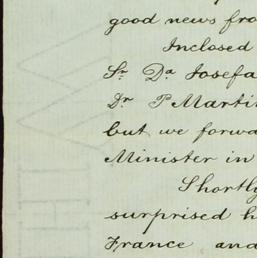 good news fro
Inclosed
Sr. Da Josefa
Dr P Marti
but we forwa
Minister in
Shortly
surprised h
France and